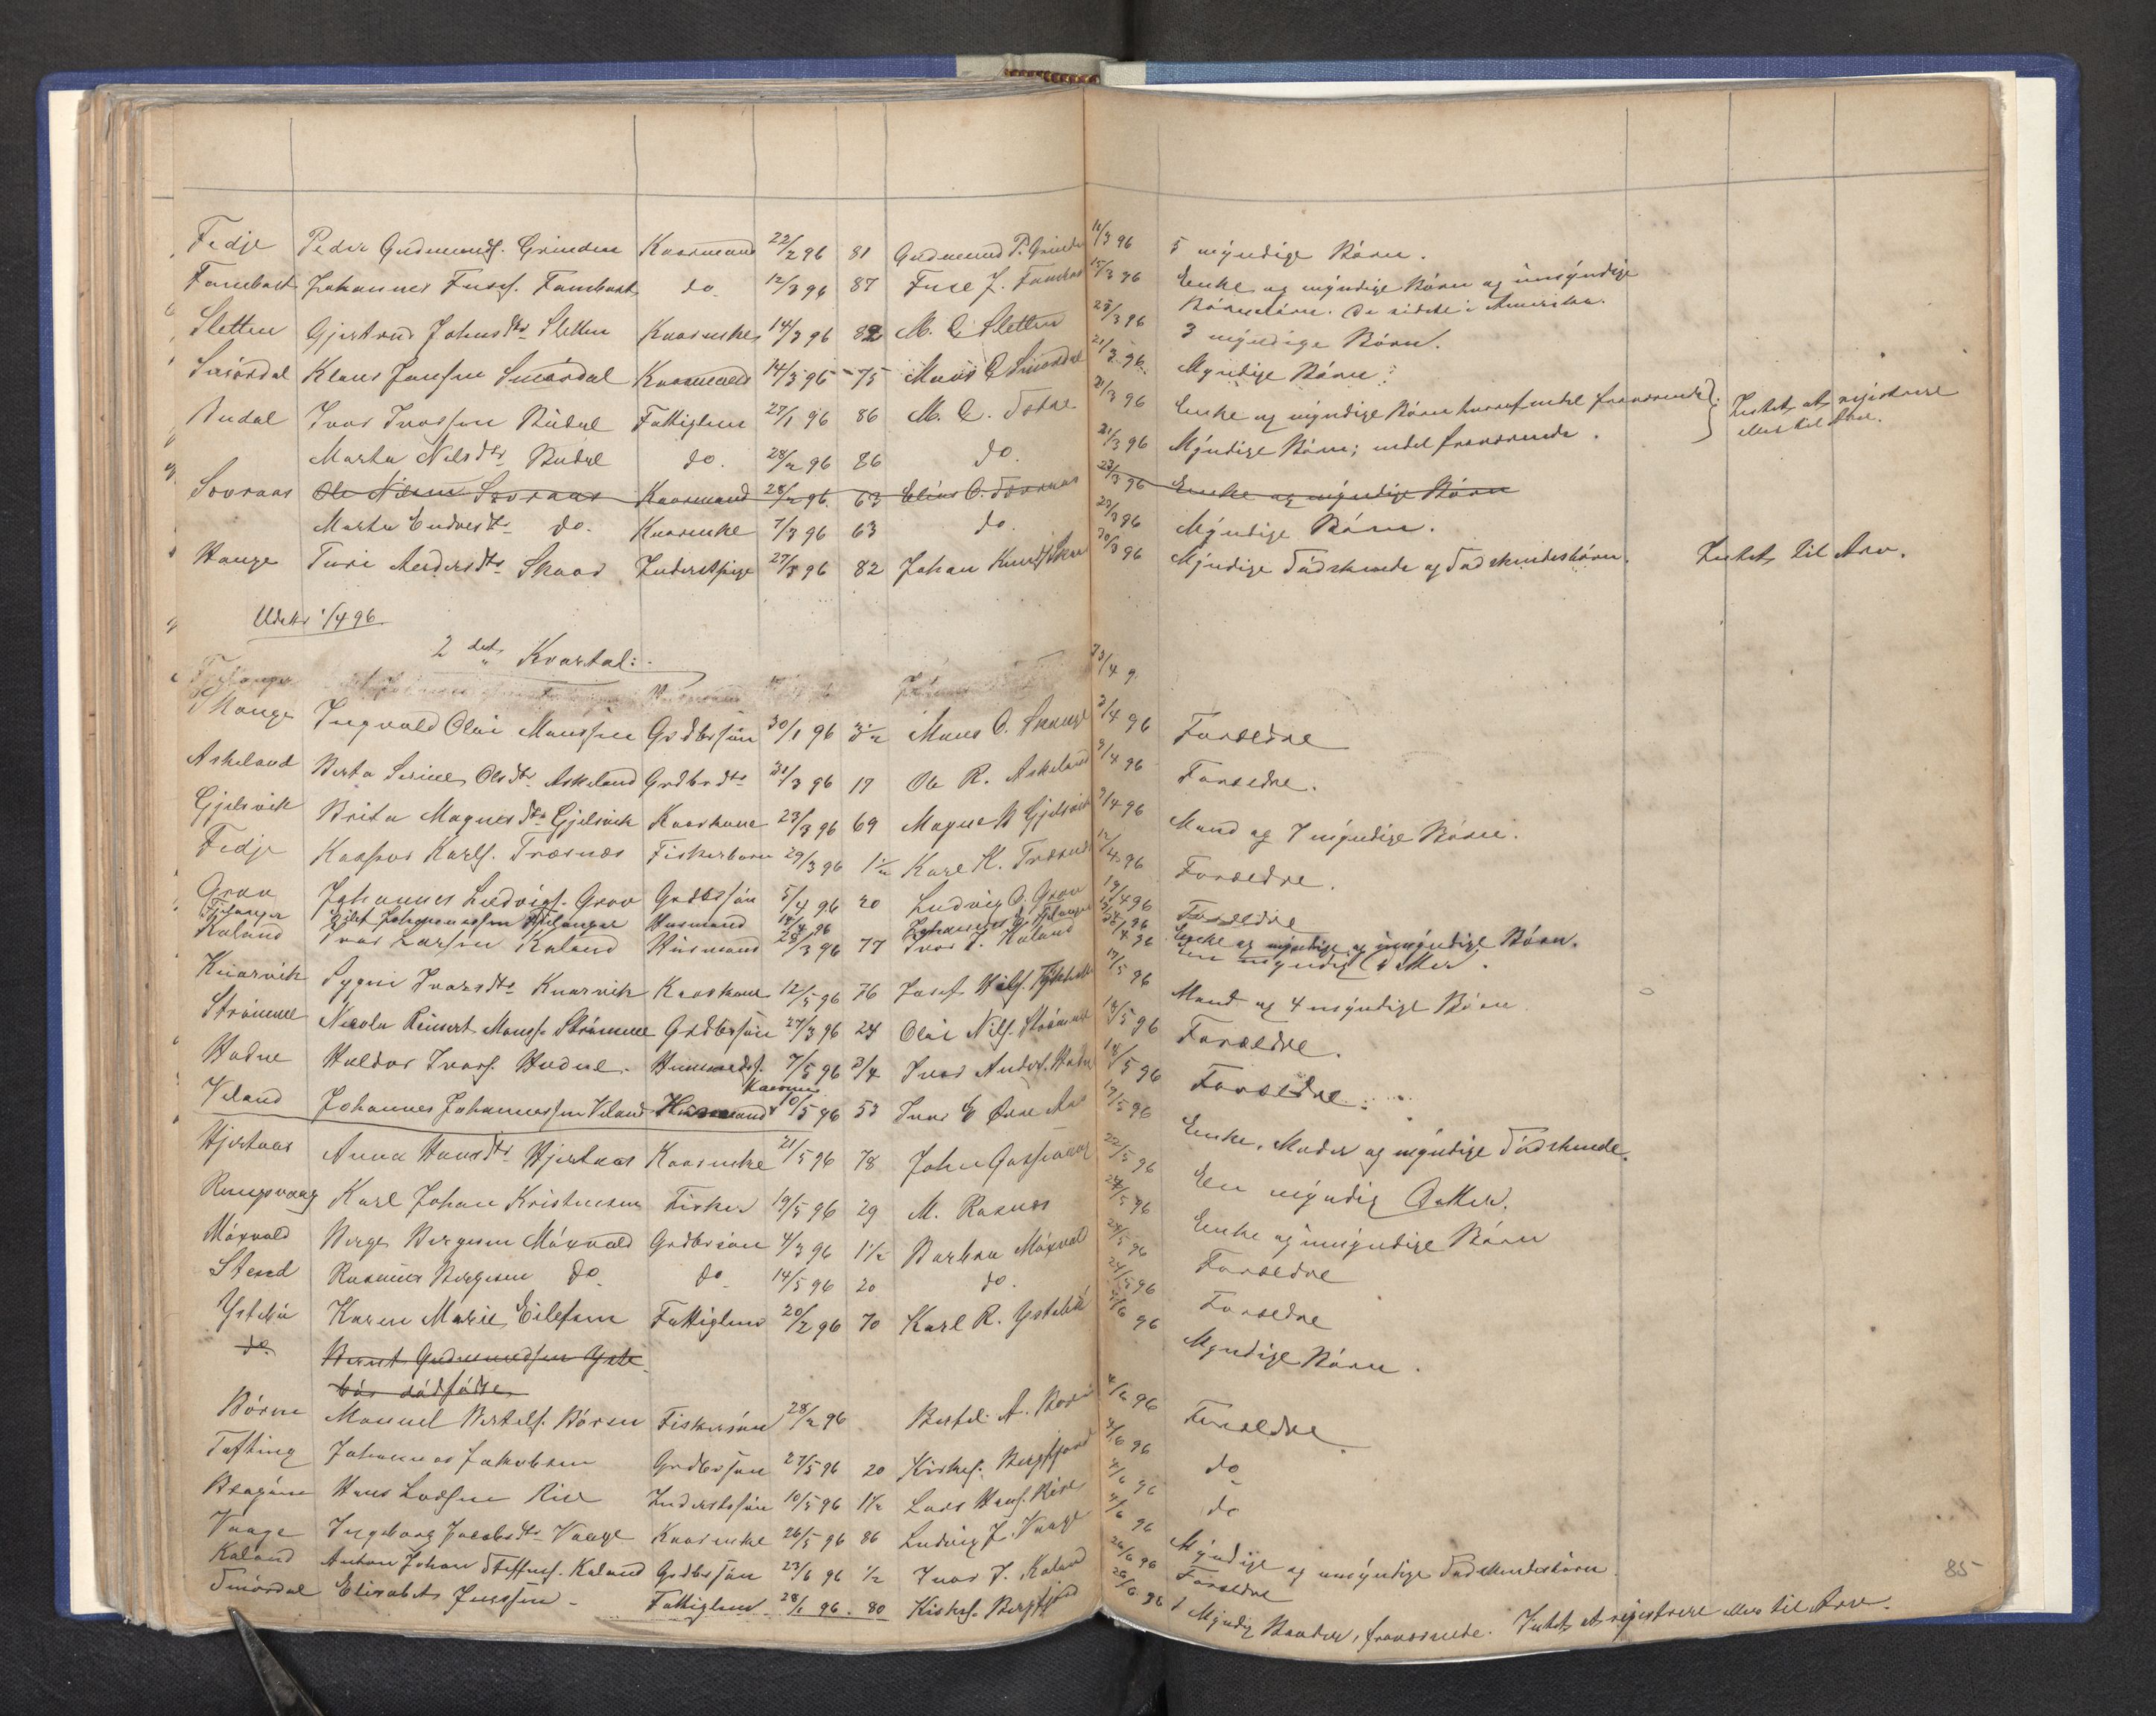 Fedje Peder Gudmunds. Grinden Kaarmand 22/2 96 81 Gudmund P. Grinde 11/3 96 5 myndige Börn.
Fombost Johannes Fuses. Fombost do. 12/3 96 87 15/3 96 Enke og myndige Börn og umyndige
Börnebörn. De sidste i Amerika.
Sletten Gjertrud Johnsdtr Sletten Kaarenke 14/3 96 82 M. O Sletten 25/3 96 3 myndige Börn.
Smördal Klaus Jansen Smördal Kaarmand 14/3 96 75 Mons O Smördal 21/3 96 Myndige Börn.
Budal Ivar Ivarsen Budal Fattiglem 27/1 96 86 M. O. 21/3 96 Enke og myndige Börn hvoraf endel fraværende. Intet at registrere
eller til Arv.
Marta Nilsdtr Budal do. 28/2 96 86 do. 21/3 96 Myndige Börn; endel fraværende.
Sovraas Ole Nilsen Sovraas Kaarmand 28/2 96 63 Elias O. 23/3 96 Enke og myndige Börn
Marta Endresdtr do. Kaarenke 7/3 96 63 do. 23/3 96 Myndige Börn.
Hauge Turi Andersdtr Skaar Inderstpige 27/3 96 82 Johan 30/3 96 Myndige Södskende og Södskendebörn. Intet til Arv.
Udskr 1/4 96
2 det Kvartal:
23/4 9
Skauge Ingvald Olai Monssen Grdbrsön 30/1 96 Mons O. Skauge 3/4 96 Forældre
Askeland Berta Serine Olsdtr Askeland Grdbrdtr 31/3 96 17 Ole R. Askeland 9/4 96 Forældre.
Gjelsvik Brita Magnesdtr Gjelsvik Kaarkone 23/3 96 69 Magne B Gjelsvik 9/4 96 Mand og 7 myndige Börn.
Fedje Kaspar Karls. Træsnæs Fiskerbarn 29/3 96 1½ Karl K. Træsnæs 12/4 96 Forældre.
Grov Johannes Ludvigs. Grov Grdbrsön 5/4 96 20 Ludvig O. Grov 19/4 96 Forældre
Fjelanger Johannessen Husmand 14/4 96 Johannes Enke og myndige og umyndige Börn.
Kaland Ivar Larsen Kaland Husmand 28/3 96 77 Ivar J. Kaland En myndig Datter.
Knarvik Sygni Ivarsdtr Knarvik Kaarkone 12/5 96 76 Josef 17/5 96 Mand og 4 myndige Börn
Strömme Nicolai Reinert Monss. Strömme Grdbrsön 27/3 96 24 Olai Nils. Strömme 18/5 96 Forældre.
Hodne Haldor Ivars. Hodne Husmands. 7/5 96 3/4 Ivar Anders. Hodne 18/5 96 Forældre.
Kaarm.
Veland Johannes Johannessen Veland Husmand 10/5 96 53 Ivar E 19/5 96 Enke, Moder og myndige Södskende.
Hjertaas Anna Hansdtr Hjertaas Kaarenke 21/5 96 78 John 22/5 96 En myndig Datter.
Rongevaag Karl Johan Kristensen Fisker 19/5 96 29 M. Rasnes 24/5 96 Enke og umyndige Börn
Möxvold Berge Bergesen Möxvold Grdbrsön 4/3 96 1½ Barbra Möxvold 24/5 96 Forældre
Stend Rasmus Bergesen do. do. 14/5 96 20 do. 24/5 96 Forældre
Ystebö Karen Marie Eilefsen Fattiglem 20/2 96 70 Karl R. Ystebö 3/6 96 Myndige Börn.
do Bernt Gudmundsen Yste-
bös dödfödte
Börnes Manuel Bertels. Börnes Fiskersön 28/2 96 Bertel A. 4/6 96 Forældre.
Tofting Johannes Jakobsen Grdbrsön 27/5 96 20 Kirkes. 4/6 96 do
Hans Larsen Rise Inderstsön 10/5 96 1½ Lars Hans. Rise 4/6 96 do
Vaage Ingeborg Jacobsdtr Vaage Kaarenke 26/5 96 86 Ludvig J. Vaage 4/6 96 Myndige og umyndige Södskendebörn.
Kaland Anton Johan Steffens. Kaland Grdbrsön 23/6 96 ½ Ivar J. Kaland 26/6 96 Forældre
Smördal Elisabet Jenssen Fattiglem 28/6 96. 80 Kirkes. 28/6 96 1 Myndig Broder, fraværende. Intet at registrere eller til Arv.
85